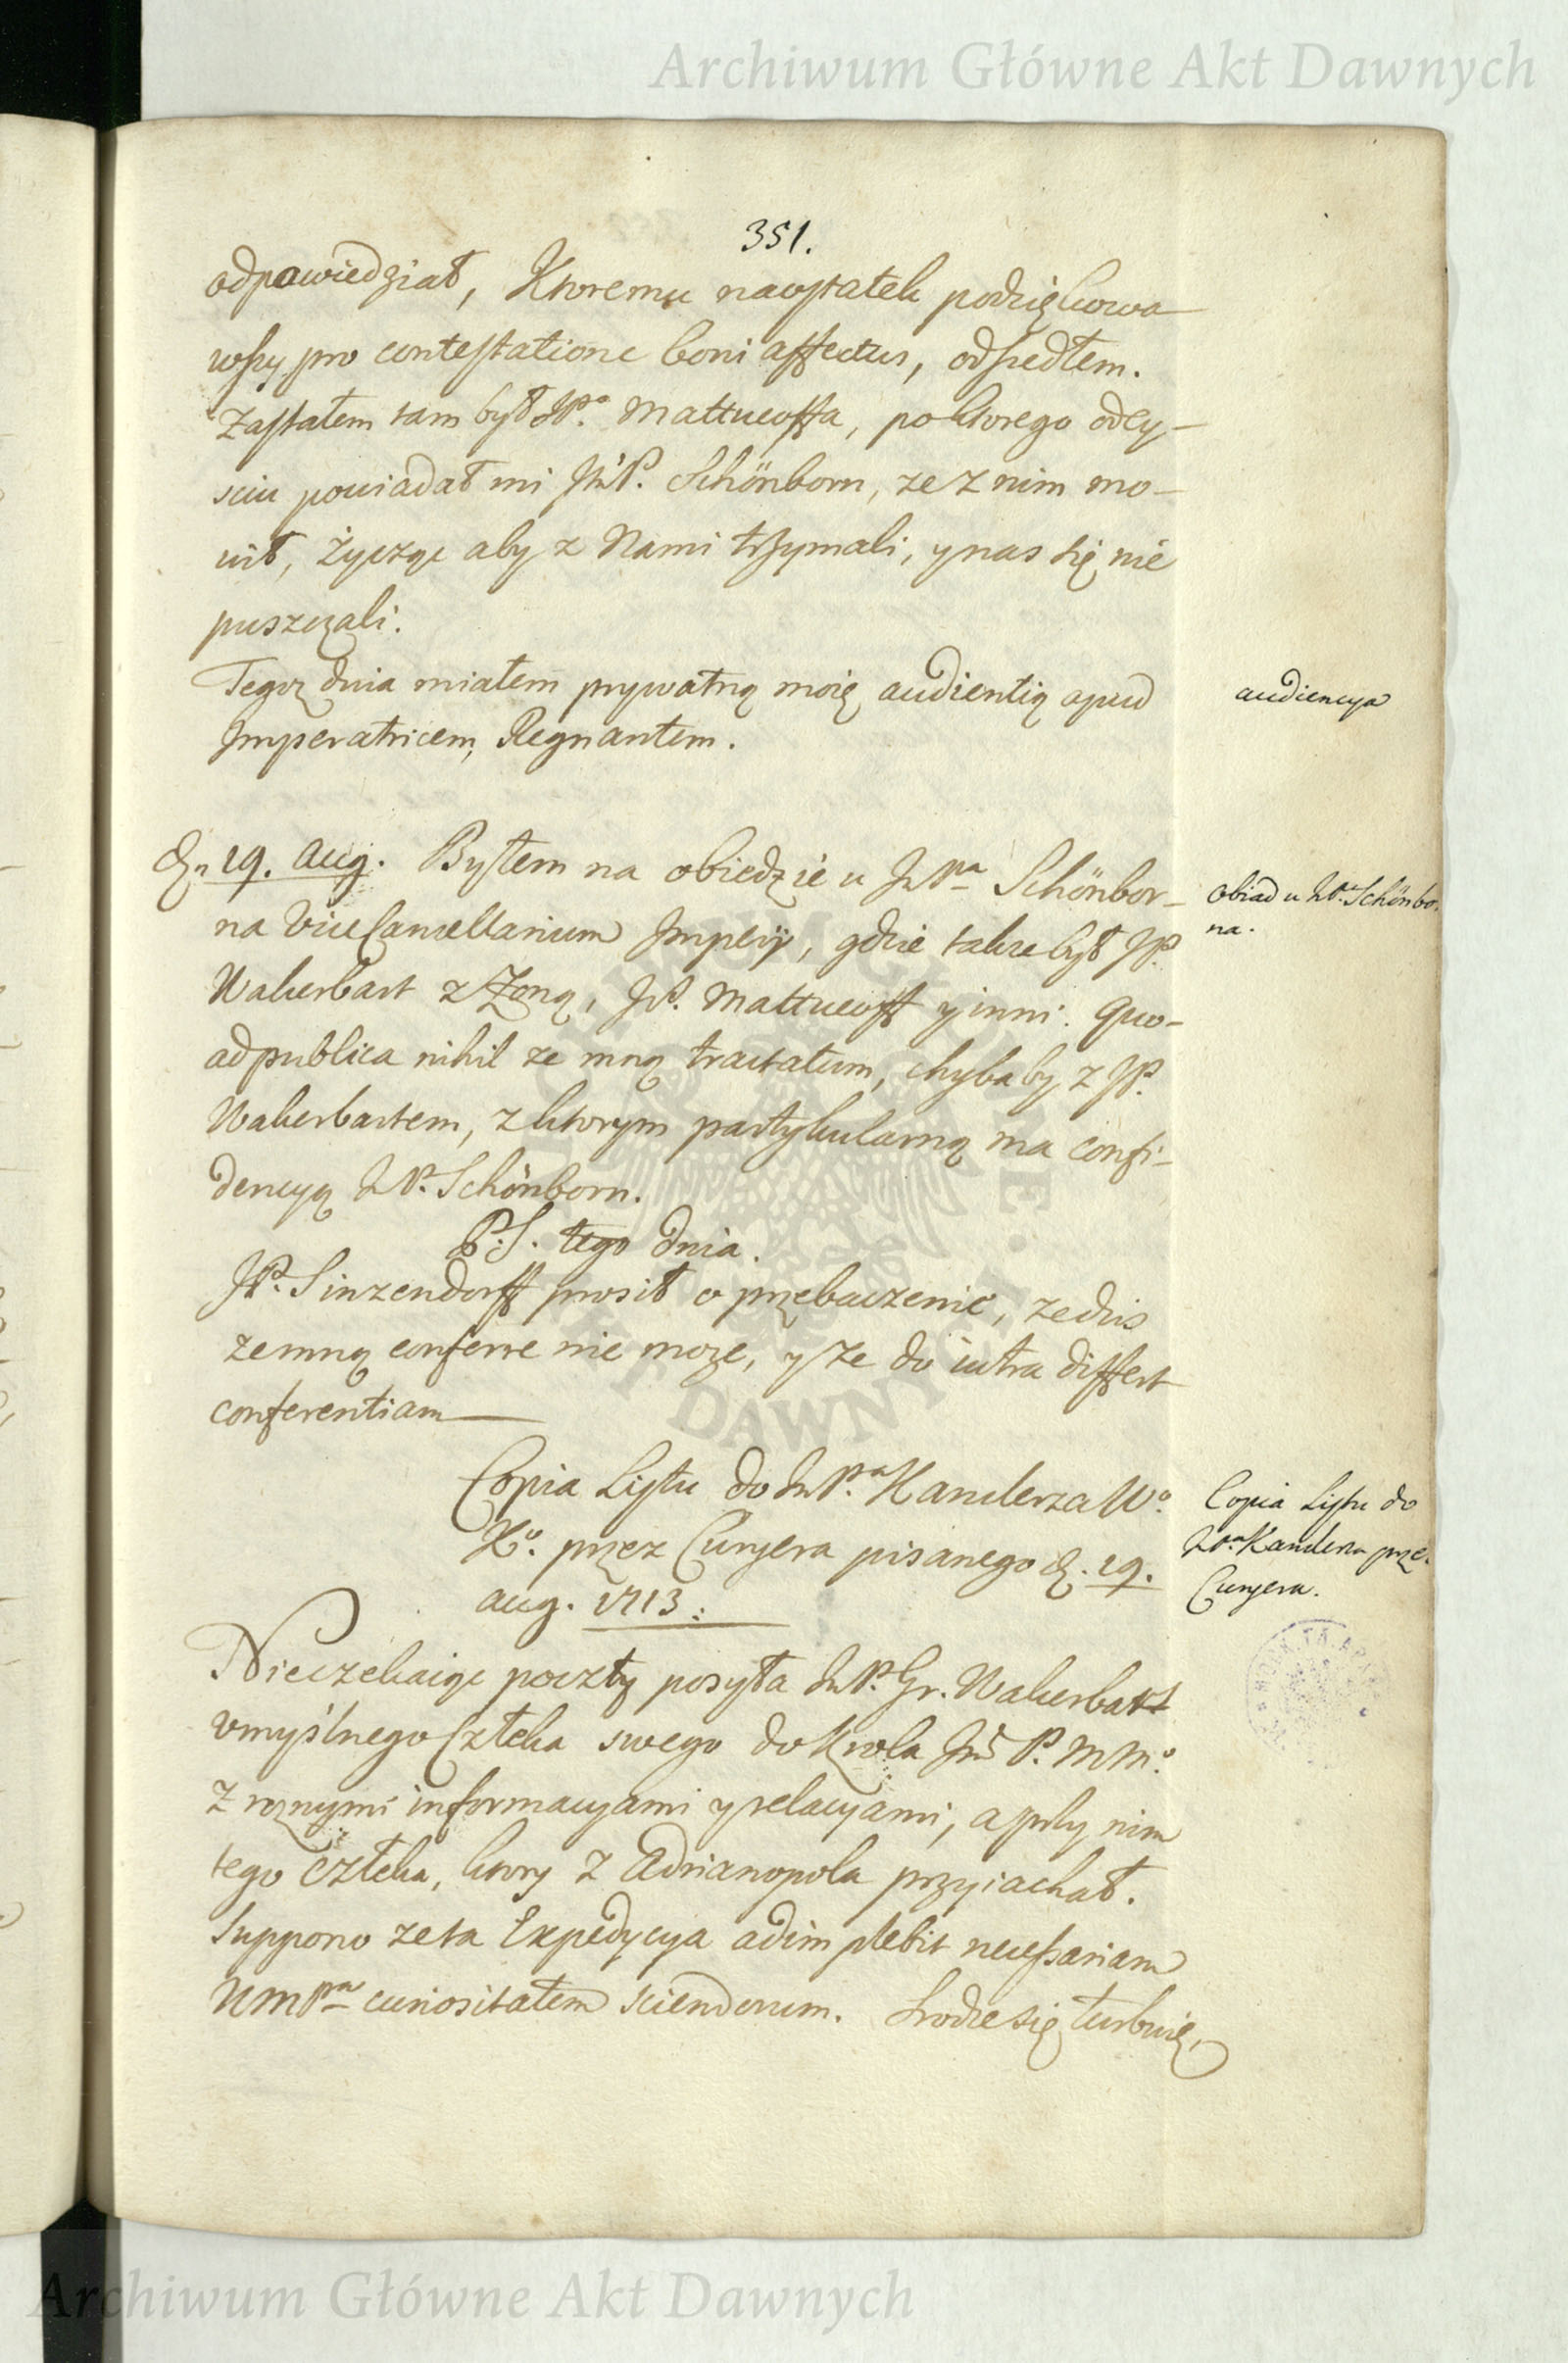 Archiwum Główne Akt Dawnych
351.
odpowiedział, Ktoremu naostatek podziękowa
wszy pro contestatione boni affectus, odszedłem.
Zastałem tam był JP.ᵃ Mattueoffa, po ktorego odey-
sciu powiadał mi Jm̃P. Schönborn, ze z nim mo-
wił, życząc aby z Nami trzymali, y nas się nie
puszczali.
Tegoz dnia miałem prywatną moię audientią apud
Imperatricem, Regnantem.
audiencya
D. 19. Aug. Byłem na obiedzie u JmPᵃ Schönbor-
na ViceCancellarium Imperij, gdzie takze był JP.
Wakerbart z Zoną, JP. Mattueoff y inni. Quo-
ad publica nihil ze mną tractatum, chyba by z JP.
Wakerbartem, z ktorym partykularną ma confi-
dencyą JmP. Schönborn.
obiad u JmPᵃ Schönbo-
na.
P.S. tego dnia.
JP. Sinzendorff prosił o przebaczenie, ze dzis
zemną conferre nie moze, y ze do iutra differt
conferentiam
Copia Listu do JmP.ᵃ Kanclerza Wᵒ.
Kᵒ. przez Curyera pisanego d. 19.
aug. 1713.
Copia Listu do
JmPᵃ Kanclerza prze.
Curyera.
Nieczekaiąc poczty posyła JmP. Gr. Wakerbart
umyślnego Człeka swego do Krola Jm̃ P. M Mᵒ.
z roznymi informacyami y relacyami, a przy nim
tego człeka, ktory z Adrianopola przyiachał.
Suppono ze ta Expedycya adimplebit necessariam
WMPᵃ curiositatem sciendorum. Srodze się turbuię,
Archiwum Główne Akt Dawnych